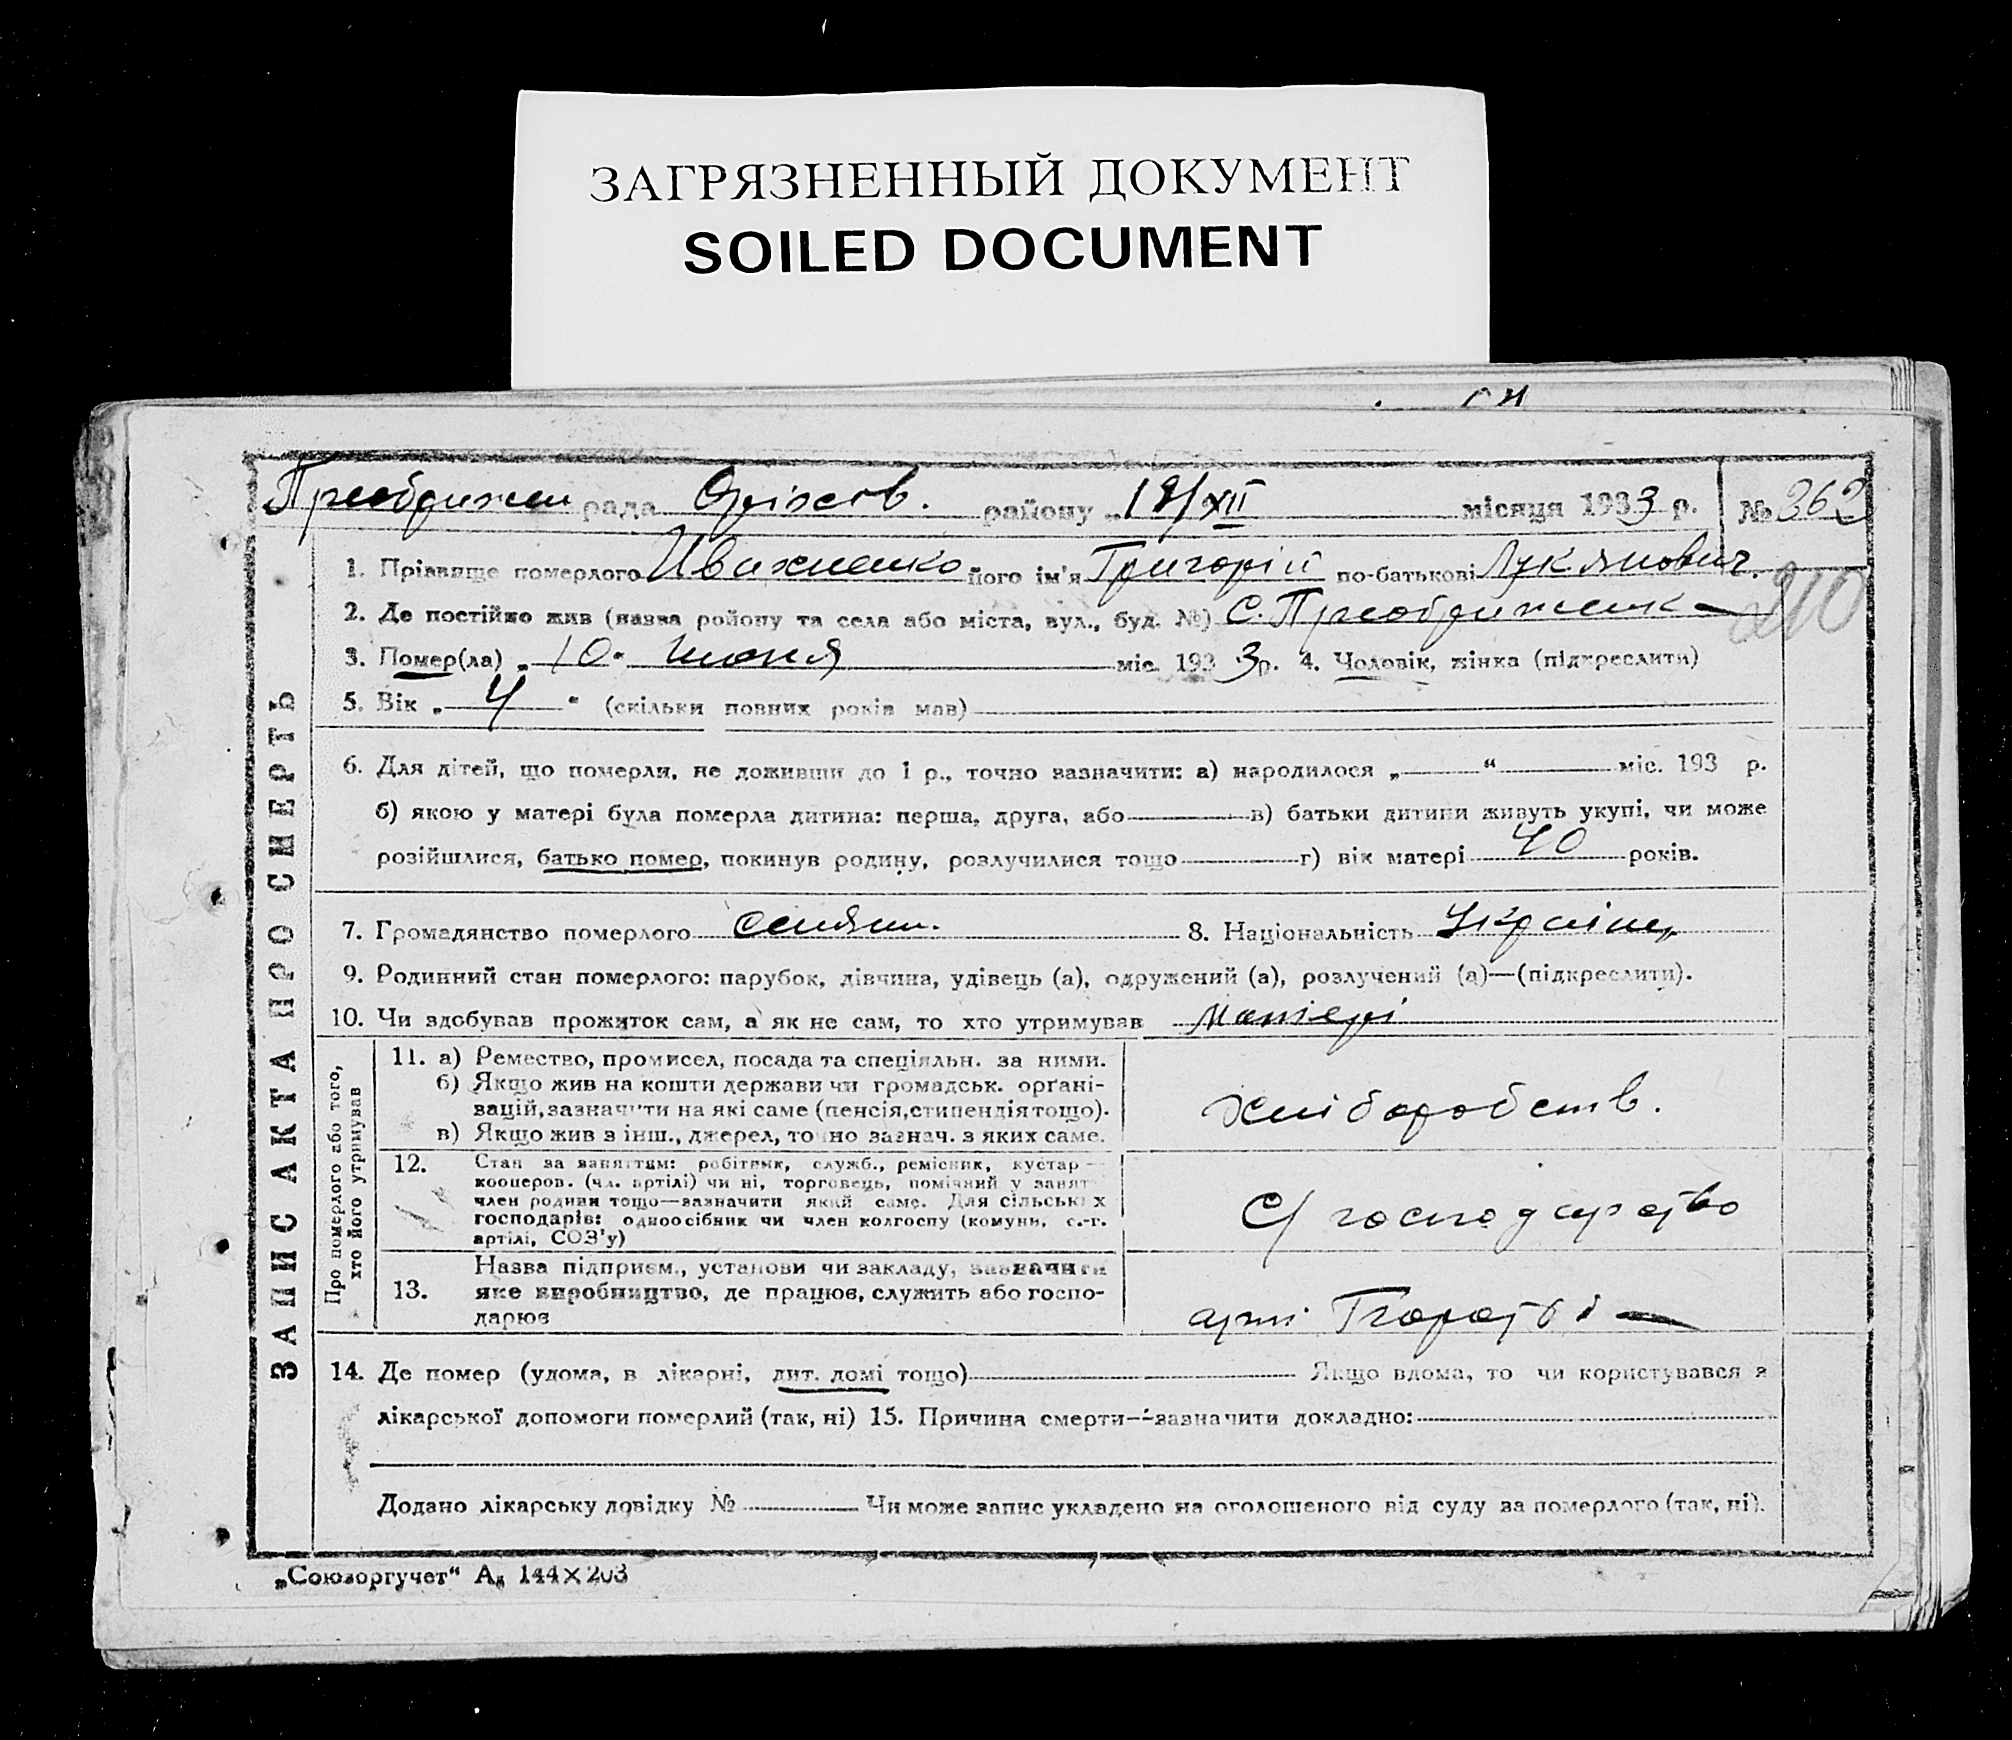 ЗАГРЯЗНЕННЫЙ ДОКУМЕНТ
SOILED DOCUMENT
Преображен рада Оріхов. району „ /XII місяця 1933 р. № 362
1. Прізвище померлого Ивахненко його ім'я Григорій по-батькові Лукянович.
210
2. Де постійно жив (назва району та села або міста, вул., буд. №) С. Преображенка
3. Помер(ла) „ 10. Июня міс. 1933 р. 4. Чоловік, жінка (підкреслити)
5. Вік „ 4 “ (скільки повних років мав)
6. Для дітей, що померли, не доживши до 1 р., точно зазначити: а) народилося „ “ міс. 193 р.
б) якою у матері була померла дитина: перша, друга, або в) батьки дитини живуть укупі, чи може
розійшлися, батько помер, покинув родину, розлучилися тощо г) вік матері 40 років.
7. Громадянство померлого селянин. 8. Національність Українец
9. Родинний стан померлого: парубок, дівчина, удівець (а), одружений (а), розлучений (а)—(підкреслити).
10. Чи здобував прожиток сам, а як не сам, то хто утримував Матері
ЗАПИС АКТА ПРО СМЕРТЬ
Про померлого або того,
хто його утримував
11. а) Ремество, промисел, посада та спеціяльн. за ними.
б) Якщо жив на кошти держави чи громадськ. орґані-
зацій, зазначити на які саме (пенсія, стипендія тощо).
в) Якщо жив з інш., джерел, точно зазнач. з яких саме.
хліборобств.
12. Стан за заняттям: робітник, служб., ремісник, кустар
кооперов. (чл. артілі) чи ні, торговець, помічний у занят
член родини тощо—зазначити який саме. Для сільських
господарів: одноосібник чи член колгоспу (комуни, с.-г.
артілі, СОЗ'у)
С/ господарство
13. Назва підприєм., установи чи закладу, зазначити
яке виробництво, де працює, служить або госпо-
дарює
арт
14. Де помер (удома, в лікарні, дит. домі тощо) Якщо вдома, то чи користувався з
лікарської допомоги померлий (так, ні) 15. Причина смерти—зазначити докладно:
Додано лікарську довідку № Чи може запис укладено на оголошеного від суду за померлого (так, ні).
„Союзоргучет“ А₄ 144×203